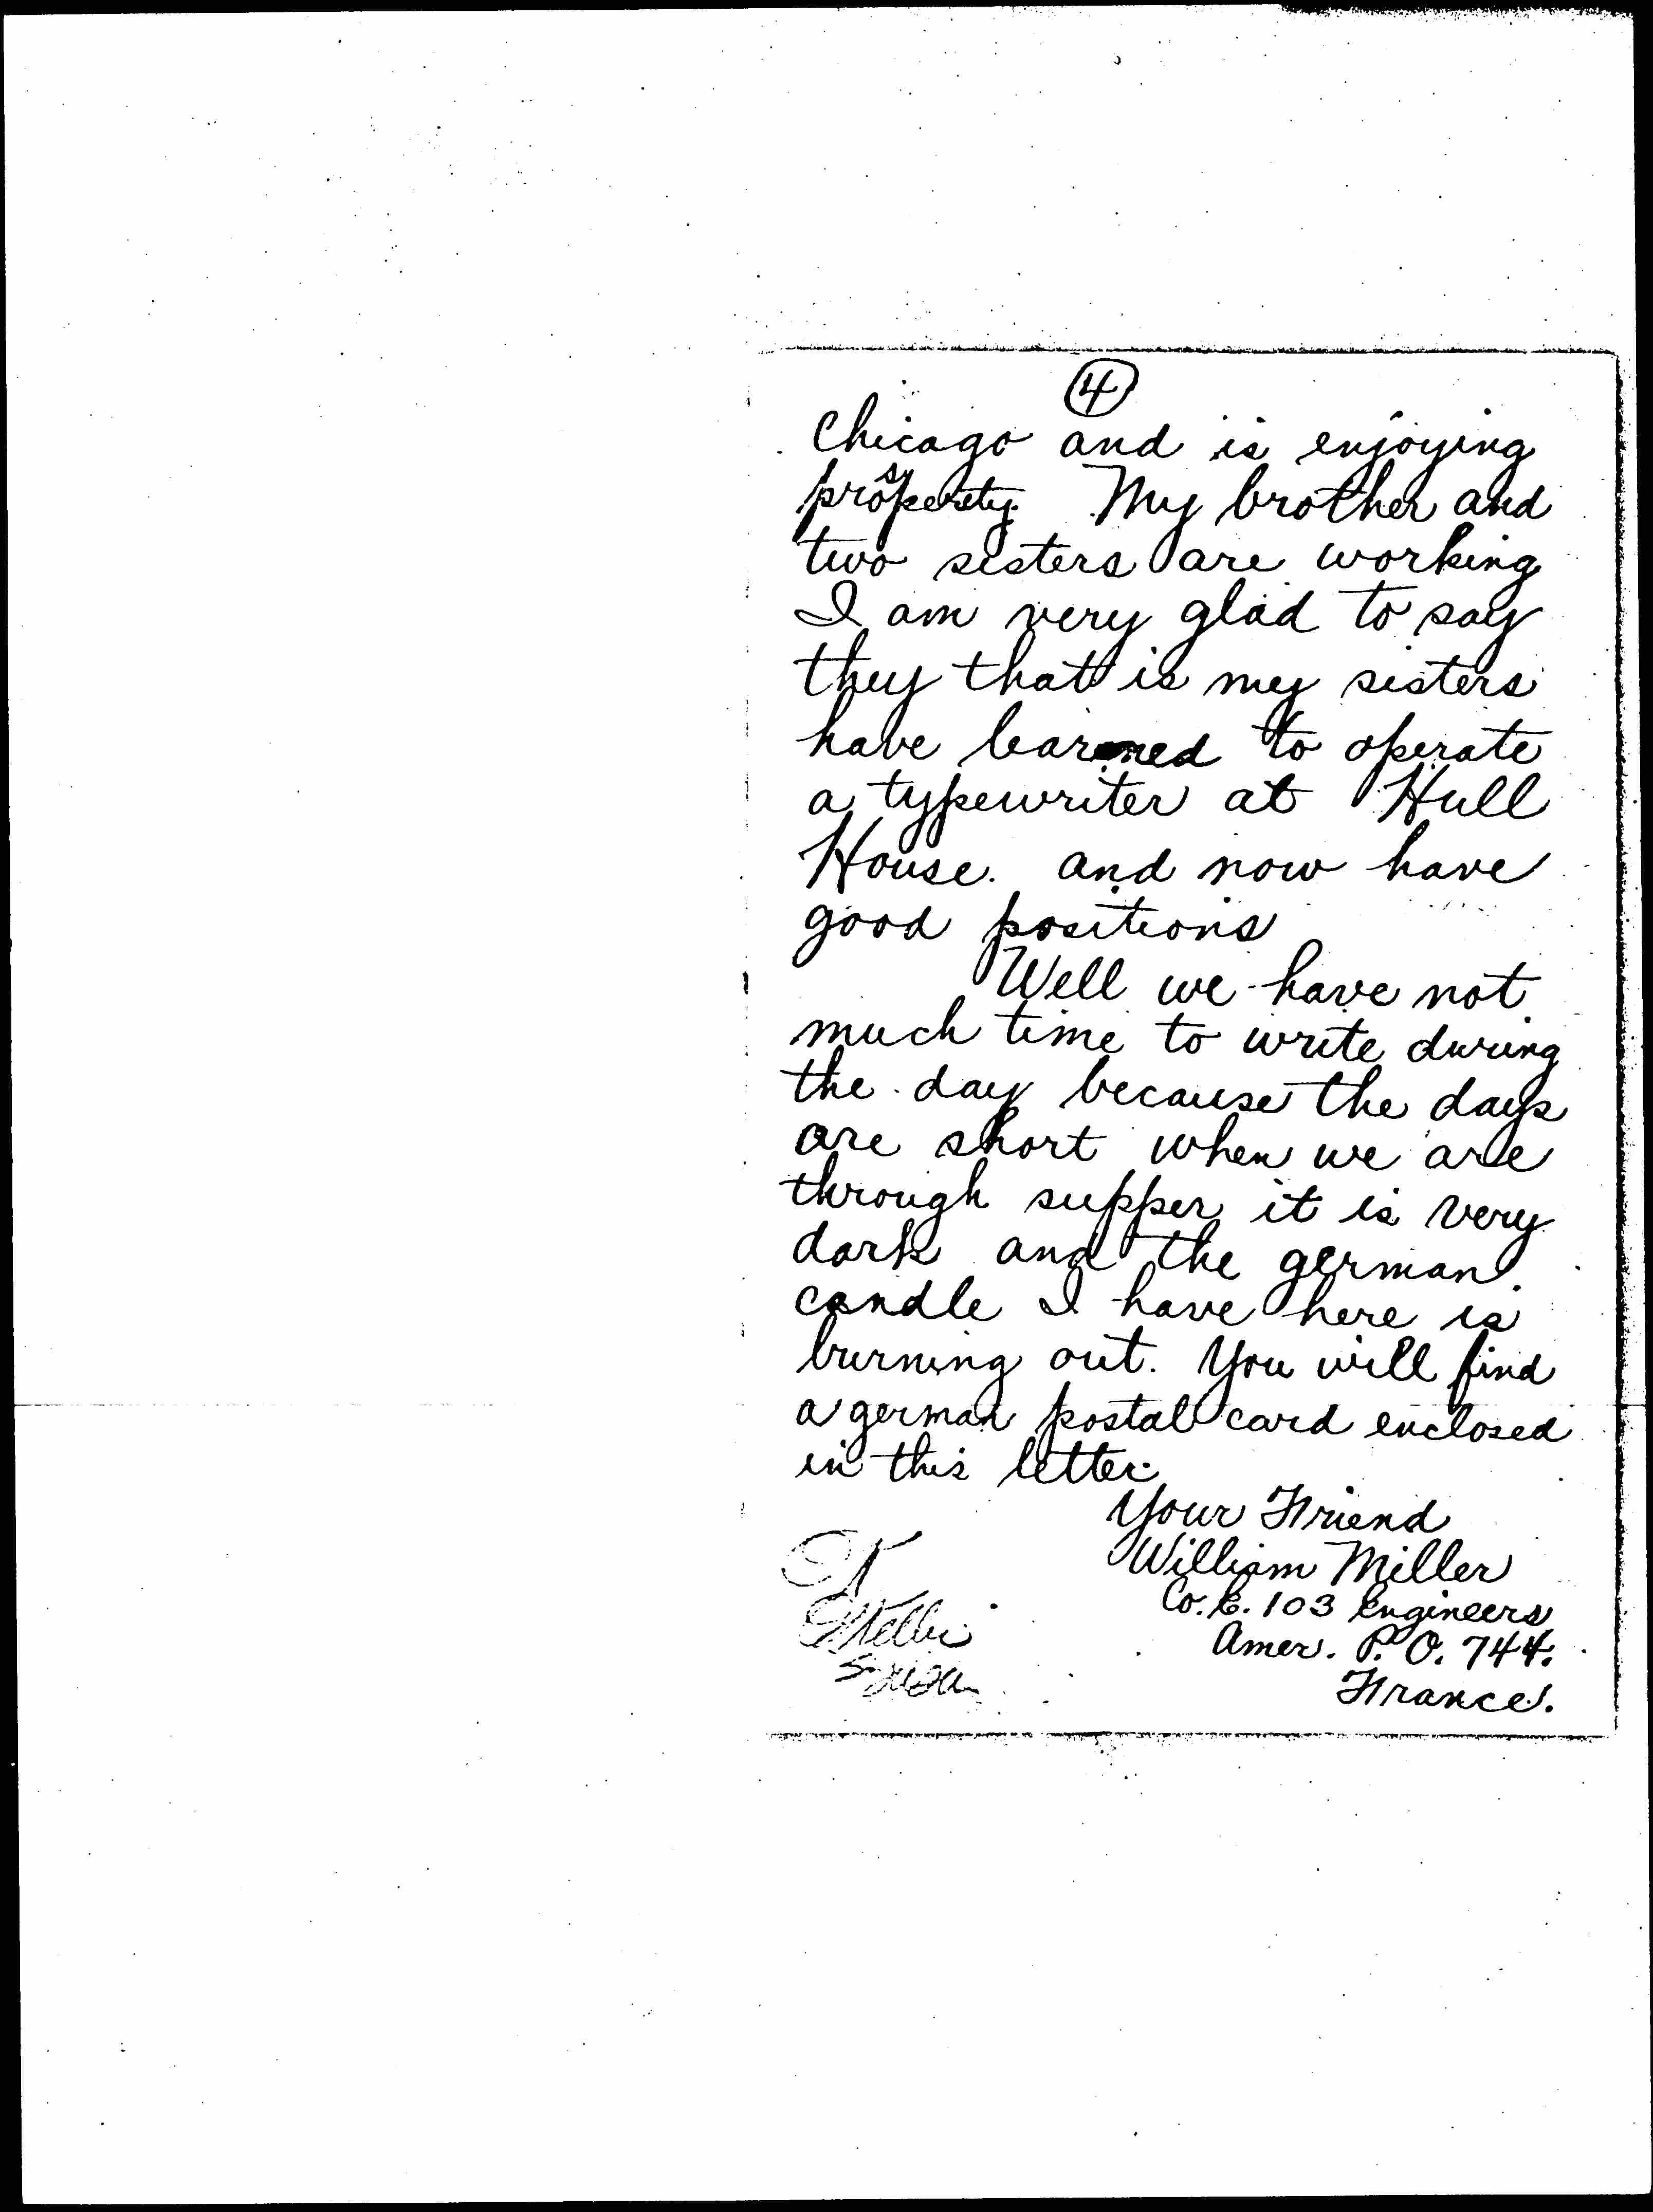 4
Chicago and is enjoying
prosperity. My brother and
two sisters are working
I am very glad to say
they that is my sisters
have learned to operate
a typewriter at Hull
House. and now have
good positions
Well we have not
much time to write during
the day because the days
are short when we are
through supper it is very
dark and the german
candle I have here is
burning out. You will find
a german postal card enclosed
in this letter.
Your Friend
William Miller
Co. E. 103 Engineers
Amer. P. O. 744.
France.